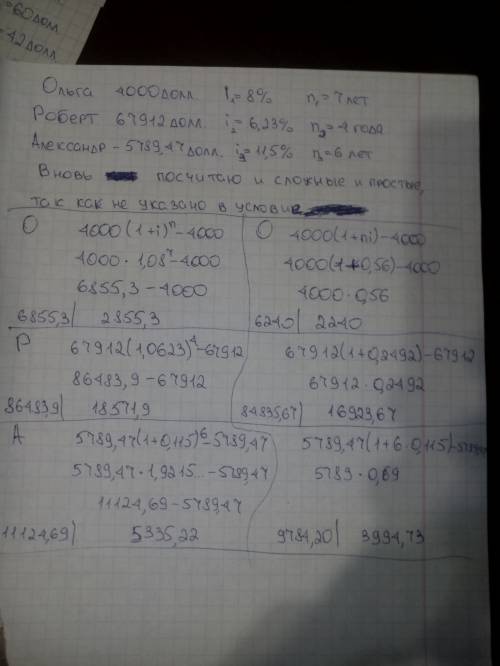 =60долл
=42долл
Ольга 4000долл. i₁=8% n₁=7лет
Роберт 67912долл. i₂=6,23% n₂=4 года
Александр - 5789,47долл. i₃=11,5% n₃=6 лет
Вновь посчитаю и сложные и простые,
так как не указано в условие
О 4000(1+i)ⁿ-4000
4000·1,08⁷-4000
6855,3-4000
6855,3| 2855,3
О 4000(1+ni)-4000
4000(1+0,56)-4000
4000·0,56
6240| 2240
Р 67912(1,0623)⁴-67912
86483,9-67912
86483,9| 18571,9
67912(1+0,2492)-67912
67912·0,2492
84835,67| 16923,67
А 5789,47(1+0,115)⁶-5789,47
5789,47·1,9215...-5789,47
11124,69-5789,47
11124,69| 5335,22
5789,47(1+6·0,115)-5789,47
5789·0,69
9784,20| 3994,73